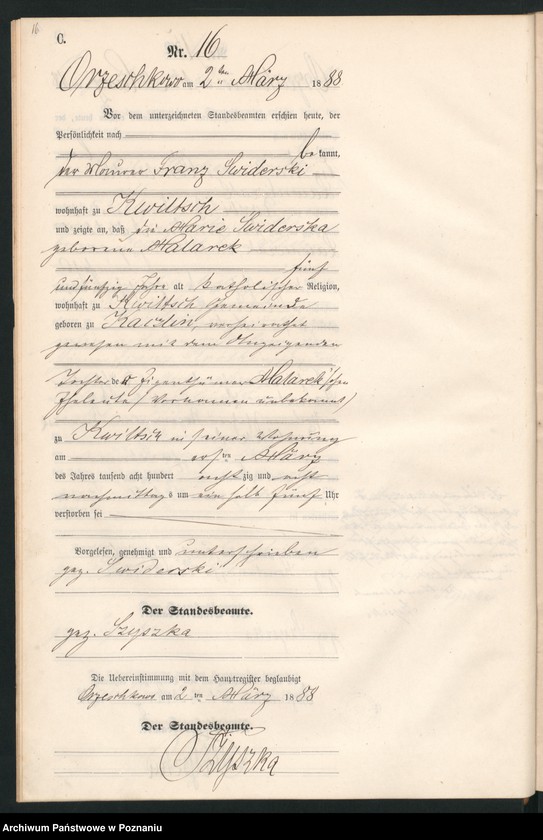 16
C.
Nr. 16
Orzeschkowo am 2ten März 1888
Vor dem unterzeichneten Standesbeamten erschien heute, der
Persönlichkeit nach
bekannt,
der Maurer Franz Swiderski
wohnhaft zu Kwiltsch
und zeigte an, daß die Marie Swiderska
geborene Matarek
fünf
und fünfzig Jahre alt katholischer Religion,
wohnhaft zu Kwiltsch Gemeinde
geboren zu verheirathet
gewesen mit dem Anzeigenden
Tochter der Eigenthümer Matarek'schen
Eheleute (Vornamen unbekannt)
zu Kwiltsch in seiner Wohnung
am ersten März
des Jahres tausend acht hundert achtzig und acht
nachmittags um ein halb fünf Uhr
verstorben sei
Vorgelesen, genehmigt und unterschrieben
gez. Swiderski
Der Standesbeamte.
gez. Szyszka
Die Uebereinstimmung mit dem Hauptregister beglaubigt
Orzeschkowo am 2ten März 1888
Der Standesbeamte.
Szyszka
Archiwum Państwowe w Poznaniu